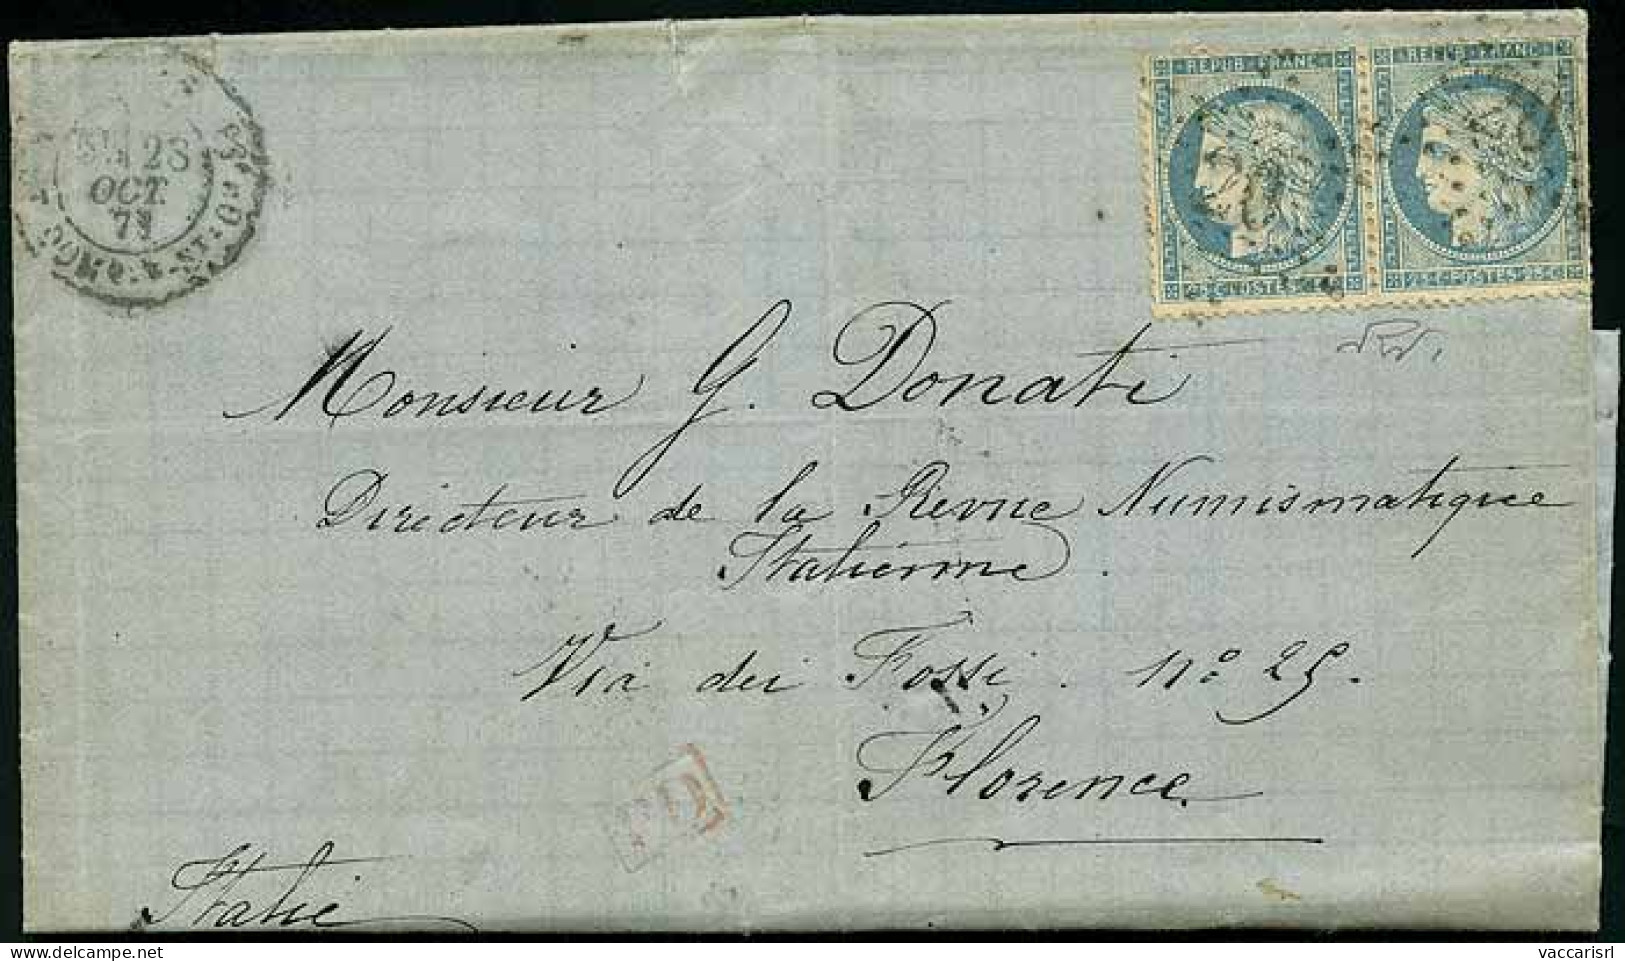 28
OCT.
73
REPUB·FRANC·
REPUB·FRANC·
25·C·POSTES·25·C
Monsieur G. Donati
Directeur de la Revue Numismatique
Italienne.
Via dei Fossi. n° 25.
Florence
PD
Italie
vaccarisrl